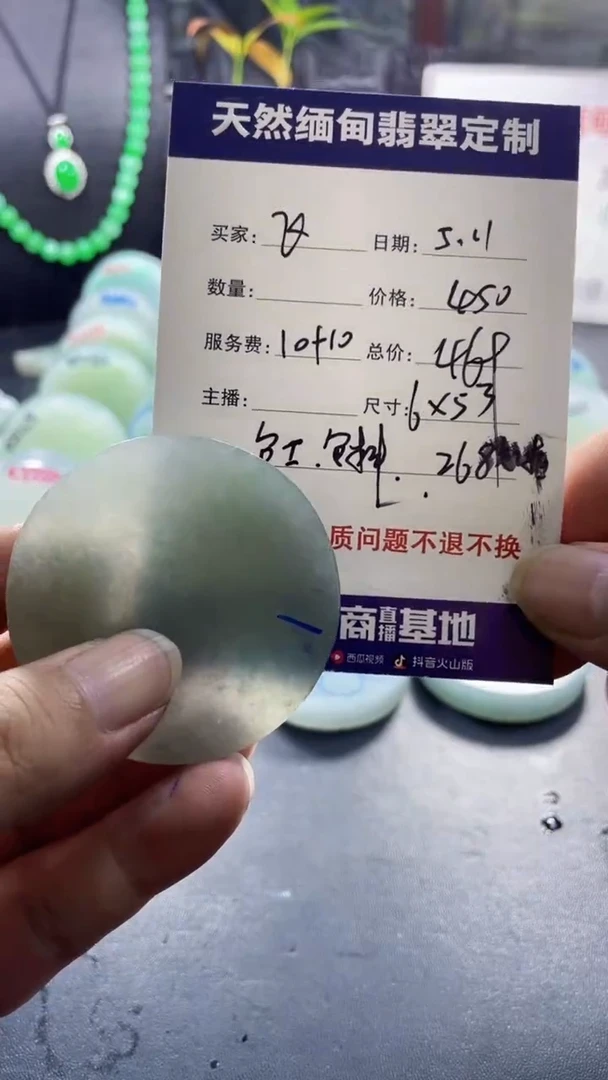 天然缅甸翡翠定制
买家: 日期: 5.11
数量: 价格: 450
服务费: 10+10 总价: 469
主播: 尺寸: 6×53
268
质问题不退不换
商直播基地
西瓜视频 抖音火山版